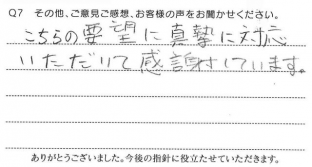 Q7 その他、ご意見ご感想、お客様の声をお聞かせください。
こちらの要望に真摯に対応
いただいて感謝しています。
ありがとうございました。今後の指針に役立たせていただきます。